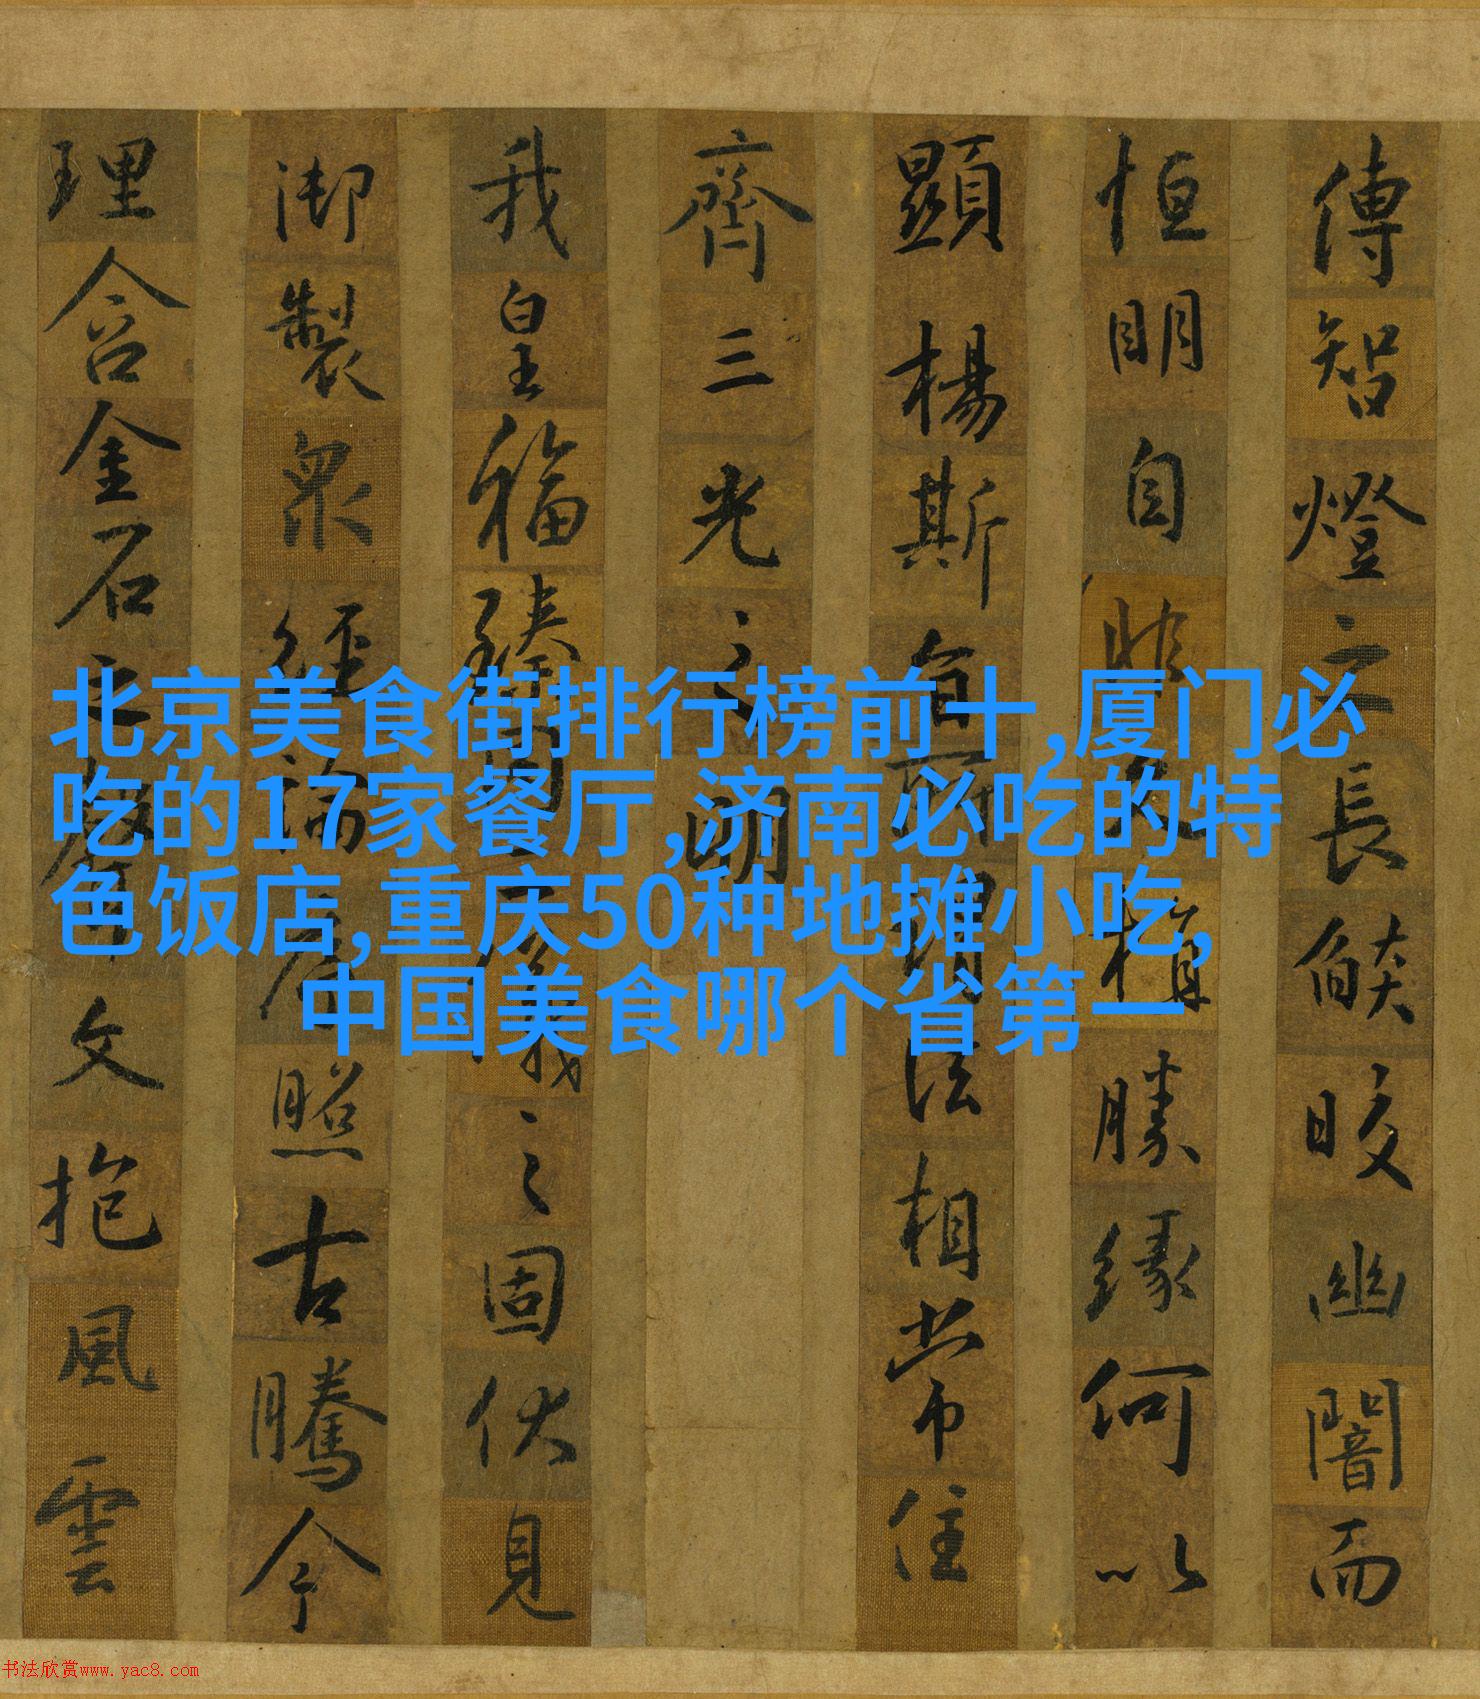 傳智燈之長燄皎幽闇而
恒明自非久植勝緣何以
顯楊斯旨所謂法相常住
齊三光之明
我皇福臻同二儀之固伏見
御製眾經論序照古騰今
理含金石之聲文抱風雲
北京美食街排行榜前十,厦门必
吃的17家餐厅,济南必吃的特
色饭店,重庆50种地摊小吃,
中国美食哪个省第一
书法欣赏www.yac8.com